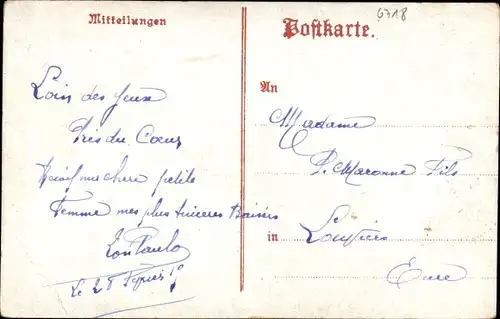 Mitteilungen
Loin des yeux
Près du Coeur
ma chere petite
Femme mes plus sinceres Baisers
Ton Paulo
Le 28
6718
Postkarte.
An
Madame
P. Maronne Fils
in Louviers
Eure